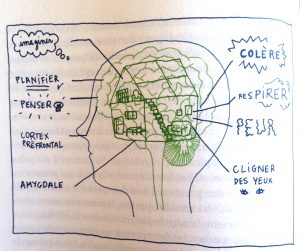 imaginer
PLANIFIER
PENSER
CORTEX
PRÉFRONTAL
AMYGDALE
COLÈRE
RESPIRER
PEUR
CLIGNER
DES YEUX